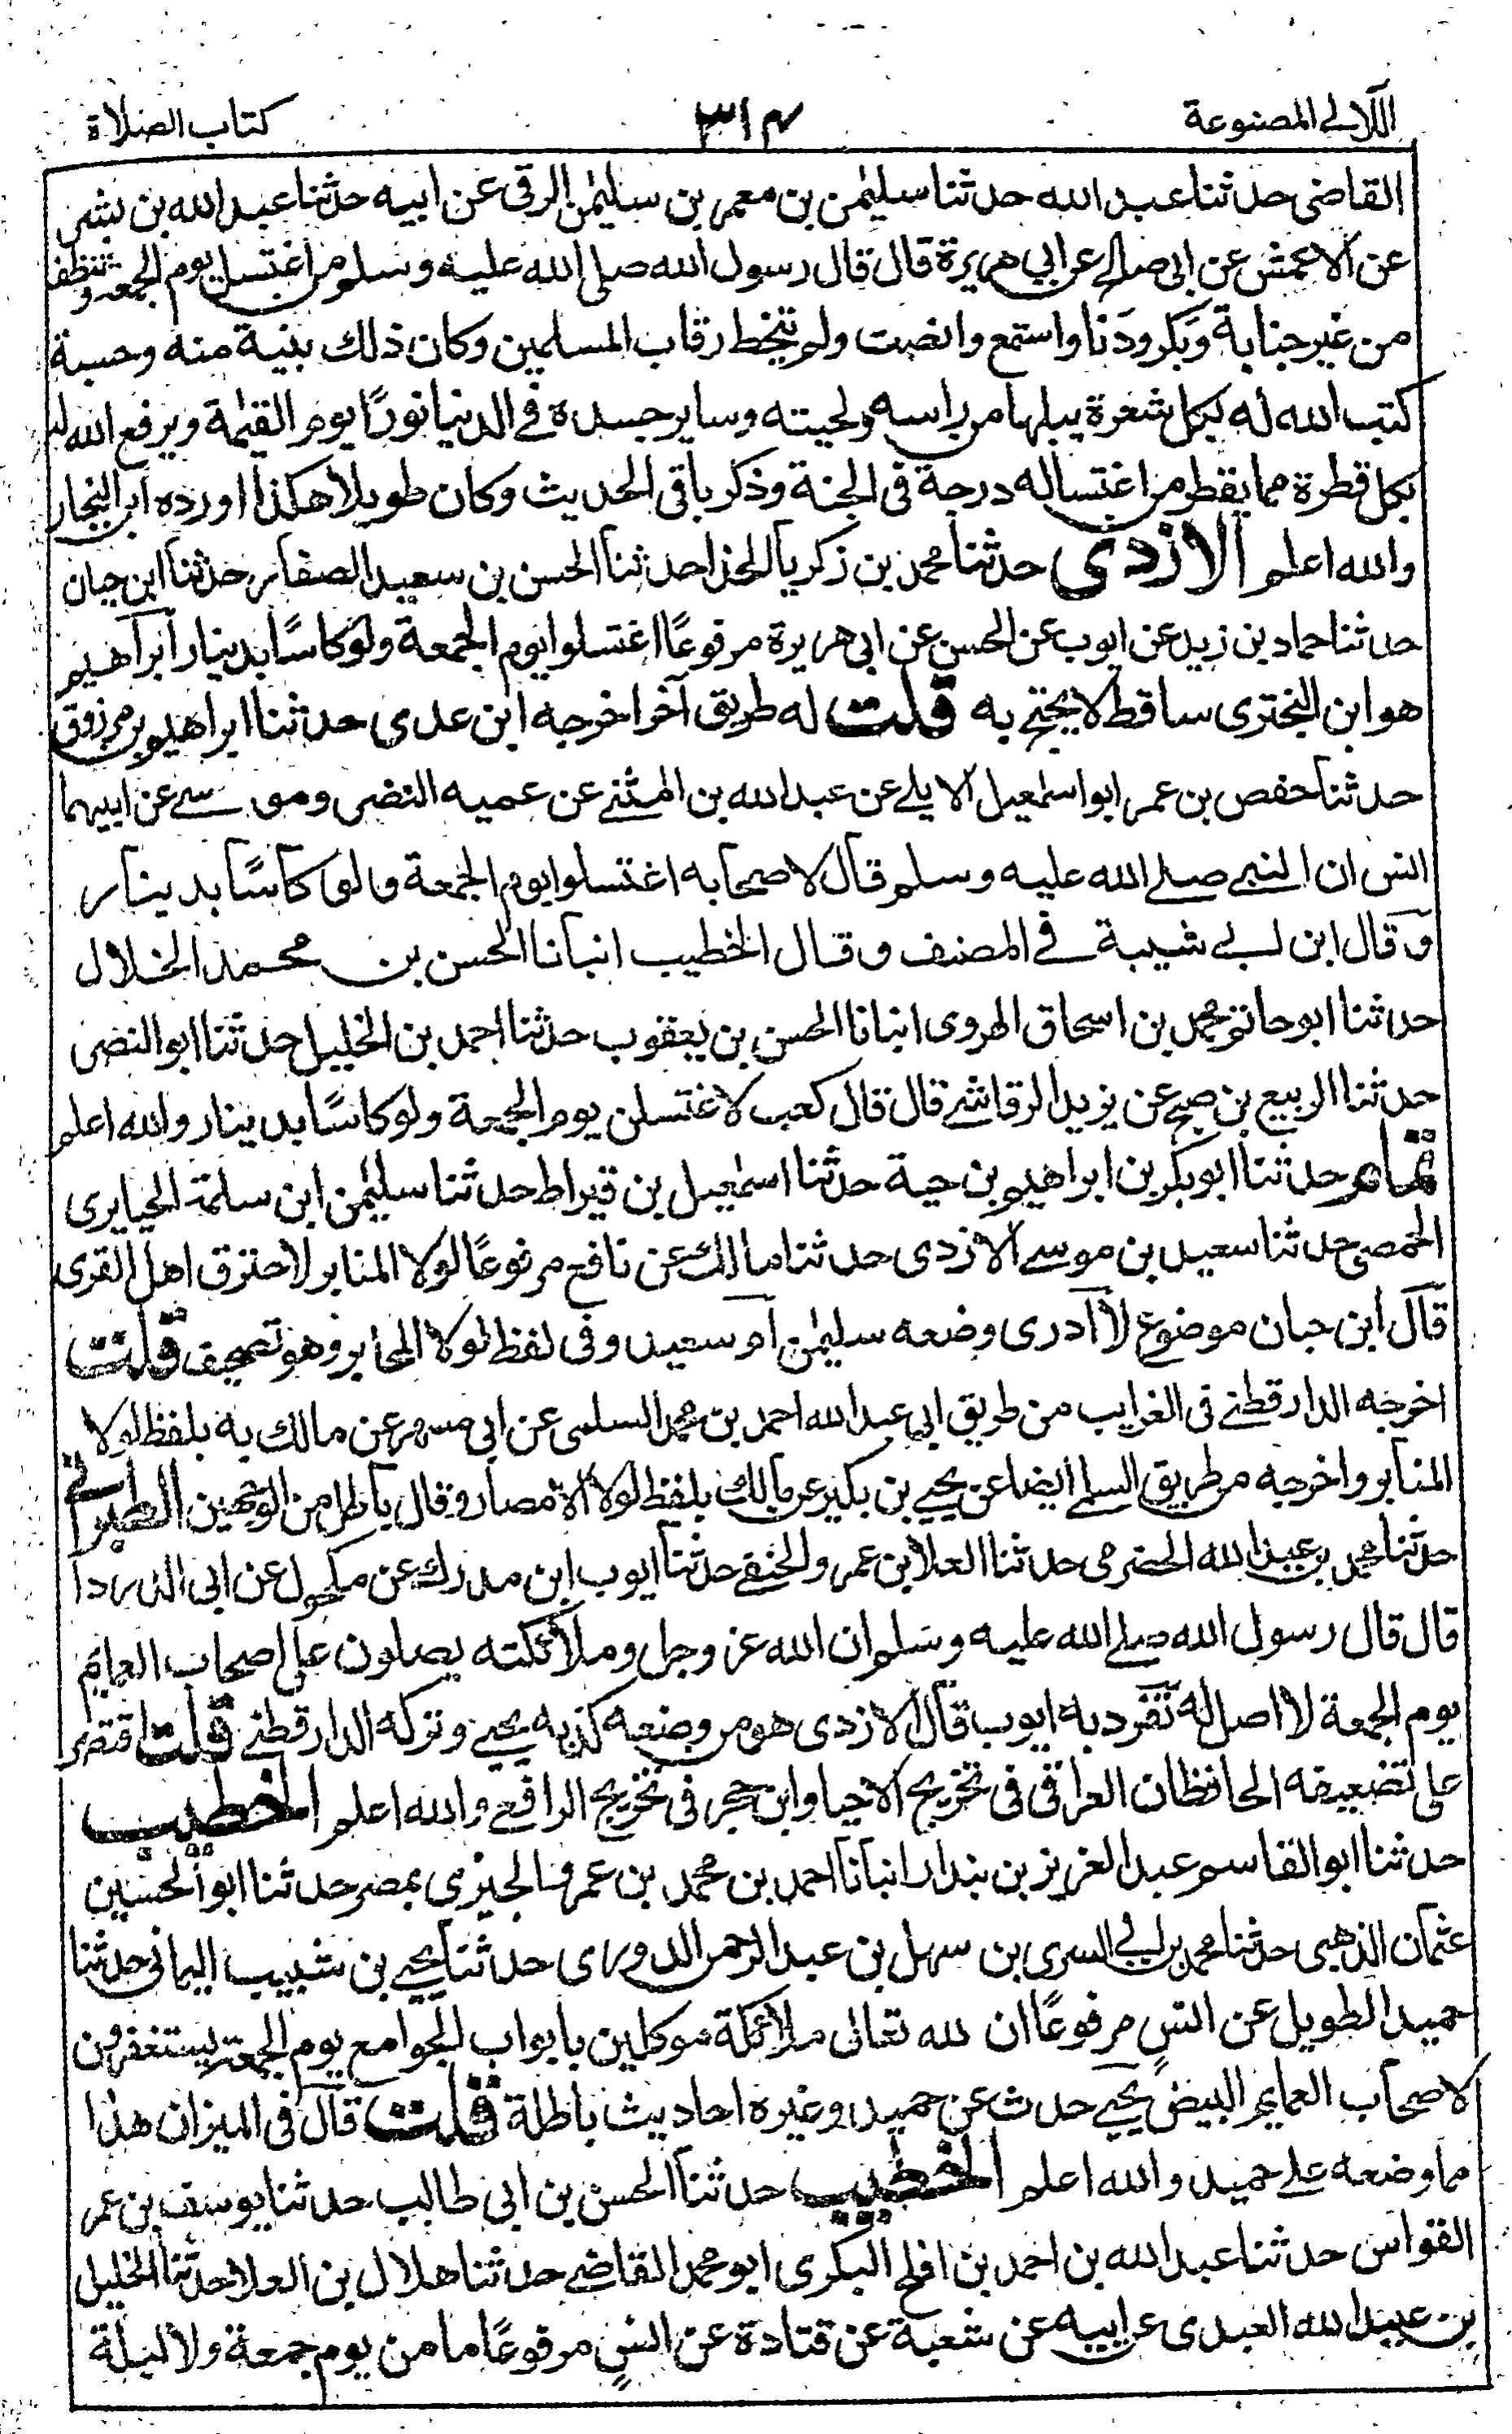 اللآلي المصنوعة ٣١٣ كتاب الصلاة
القاضى حدثنا عبد الله حدثنا سليمن بن معمر بن سليمن الرقى عن ابيه حدثنا عبد الله بن بشر
عن الاعمش عن ابى صالح عن ابي هريرة قال قال رسول الله صلى الله عليه وسلم من اغتسل يوم الجمعة وتنظف
من غير جنابة وبكر ودنا واستمع وانصت ولم يتخط رقاب المسلمين وكان ذلك بنية منه وحسبة
كتب الله له بكل شعرة يبلها من راسه ولحيته وساير جسده في الدنيا نورًا يوم القيمة ويرفع الله له
بكل قطرة مما يقطر من اغتساله درجة فى الجنة وذكر باقى الحديث وكان طويلا هكذا اورده ابن النجار
والله اعلم الازدى حدثنا محمد بن زكريا الحذا حدثنا الحسن بن سعيد الصفار حدثنا ابن حبان
حدثنا حماد بن زيد عن ايوب عن الحسن عن ابى هريرة مرفوعًا اغتسلوا يوم الجمعة ولو كاسًا بدينار ابراهيم
هو ابن البختري ساقط لا يحتج به قلت له طريق آخر اخرجه ابن عدى حدثنا ابراهيم بن مرزوق
حدثنا حفص بن عمر ابو اسمعيل الايلے عن عبد الله بن المثنے عن عميه النضر وموسے عن ابيهما
انس ان النبے صلے الله عليه وسلم قال لاصحابه اغتسلوا يوم الجمعة ولو كاسًا بدينار
وقال ابن ابے شيبة فے المصنف وقال الخطيب انبانا الحسن بن محمد الخلال
حدثنا ابو حاتم محمد بن اسحاق الهروى انبانا الحسن بن يعقوب حدثنا احمد بن الخليل حدثنا ابو النضر
حدثنا الربيع بن صبح عن يزيد الرقاشے قال قال كعب لاغتسلن يوم الجمعة ولو كاسًا بدينار والله اعلم
تمام حدثنا ابو بكر بن ابراهيم بن حية حدثنا اسمعيل بن قيراط حدثنا سليمن ابن سلمة الخبايرى
الحمصى حدثنا سعيد بن موسے الازدى حدثنا مالك عن نافع مرفوعًا لولا المنابر لاحترق اهل القرى
قال ابن حبان موضوع لا ادرى وضعه سليمن ام سعيد وفى لفظ لولا المحابر وهو تصحيف قلت
اخرجه الدارقطنے فى الغرايب من طريق ابي عبد الله احمد بن محمد السلمى عن ابى مسهر عن مالك به بلفظ لولا
المنابر واخرجه من طريق السلمے ايضا عن يحيے بن بكير عن مالك بلفظ لولا الامصار وقال باطل من الوجهين الطبرانے
حدثنا محمد بن عبد الله الحضرمى حدثنا العلا بن عمرو الحنفے حدثنا ايوب ابن مدرك عن مكحول عن ابى الدردا
قال قال رسول الله صلے الله عليه وسلم ان الله عز وجل وملائكته يصلون على اصحاب العمايم
يوم الجمعة لا اصل له تفرد به ايوب قال الازدى هو من وضعه كذبه يحيے وتركه الدارقطنے قلت اقتصر
على تضعيفه الحافظان العراقى فى تخريج الاحيا وابن حجر فى تخريج الرافعے والله اعلم الخطيب
حدثنا ابو القاسم عبد العزيز بن بندار انبانا احمد بن محمد بن عمرو الجيزى بمصر حدثنا ابو الحسين
عثمان الذهبى حدثنا محمد بن ابے السرى بن سهل بن عبد الرحمن الدورى حدثنا يحيے بن شبيب اليمانى حدثنا
حميد الطويل عن انس مرفوعًا ان لله تعالى ملائكة موكلين بابواب الجوامع يوم الجمعة يستغفرون
لاصحاب العمايم البيض يحيے حدث عن حميد وغيره احاديث باطلة قلت قال فى الميزان هذا
مما وضعه علے حميد والله اعلم الخطيب حدثنا الحسن بن ابى طالب حدثنا يوسف بن عمر
القواس حدثنا عبد الله بن احمد بن افلح البكرى ابو محمد القاضے حدثنا هلال بن العلا حدثنا الخليل
بن عبيد الله العبدى عن ابيه عن شعبة عن قتادة عن انس مرفوعًا ما من يوم جمعة ولا ليلة